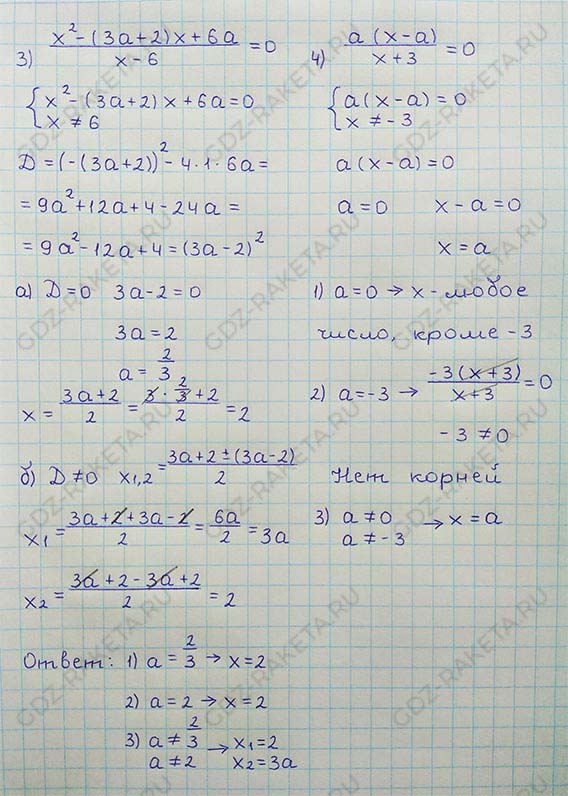 3) (x² - (3a+2)x + 6a)/(x-6) = 0
{x² - (3a+2)x + 6a = 0
{x ≠ 6
D = (-(3a+2))² - 4·1·6a =
= 9a² + 12a + 4 - 24a =
= 9a² - 12a + 4 = (3a-2)²
а) D=0 3a-2=0
3a = 2
a = 2/3
x = (3a+2)/2 = (3·2/3+2)/2 = 2
б) D ≠ 0 x₁,₂ = (3a+2±(3a-2))/2
x₁ = (3a+2+3a-2)/2 = 6a/2 = 3a
x₂ = (3a+2-3a+2)/2 = 2
Ответ: 1) a = 2/3 → x=2
2) a = 2 → x=2
3) a ≠ 2/3 → x₁=2
a ≠ 2 x₂=3a
4) a(x-a)/(x+3) = 0
{a(x-a) = 0
{x ≠ -3
a(x-a) = 0
a=0 x-a=0
x=a
1) a=0 → x-любое
число, кроме -3
2) a=-3 → -3(x+3)/(x+3) = 0
-3 ≠ 0
Нет корней
3) a ≠ 0 → x=a
a ≠ -3
GDZ-RAKETA.RU